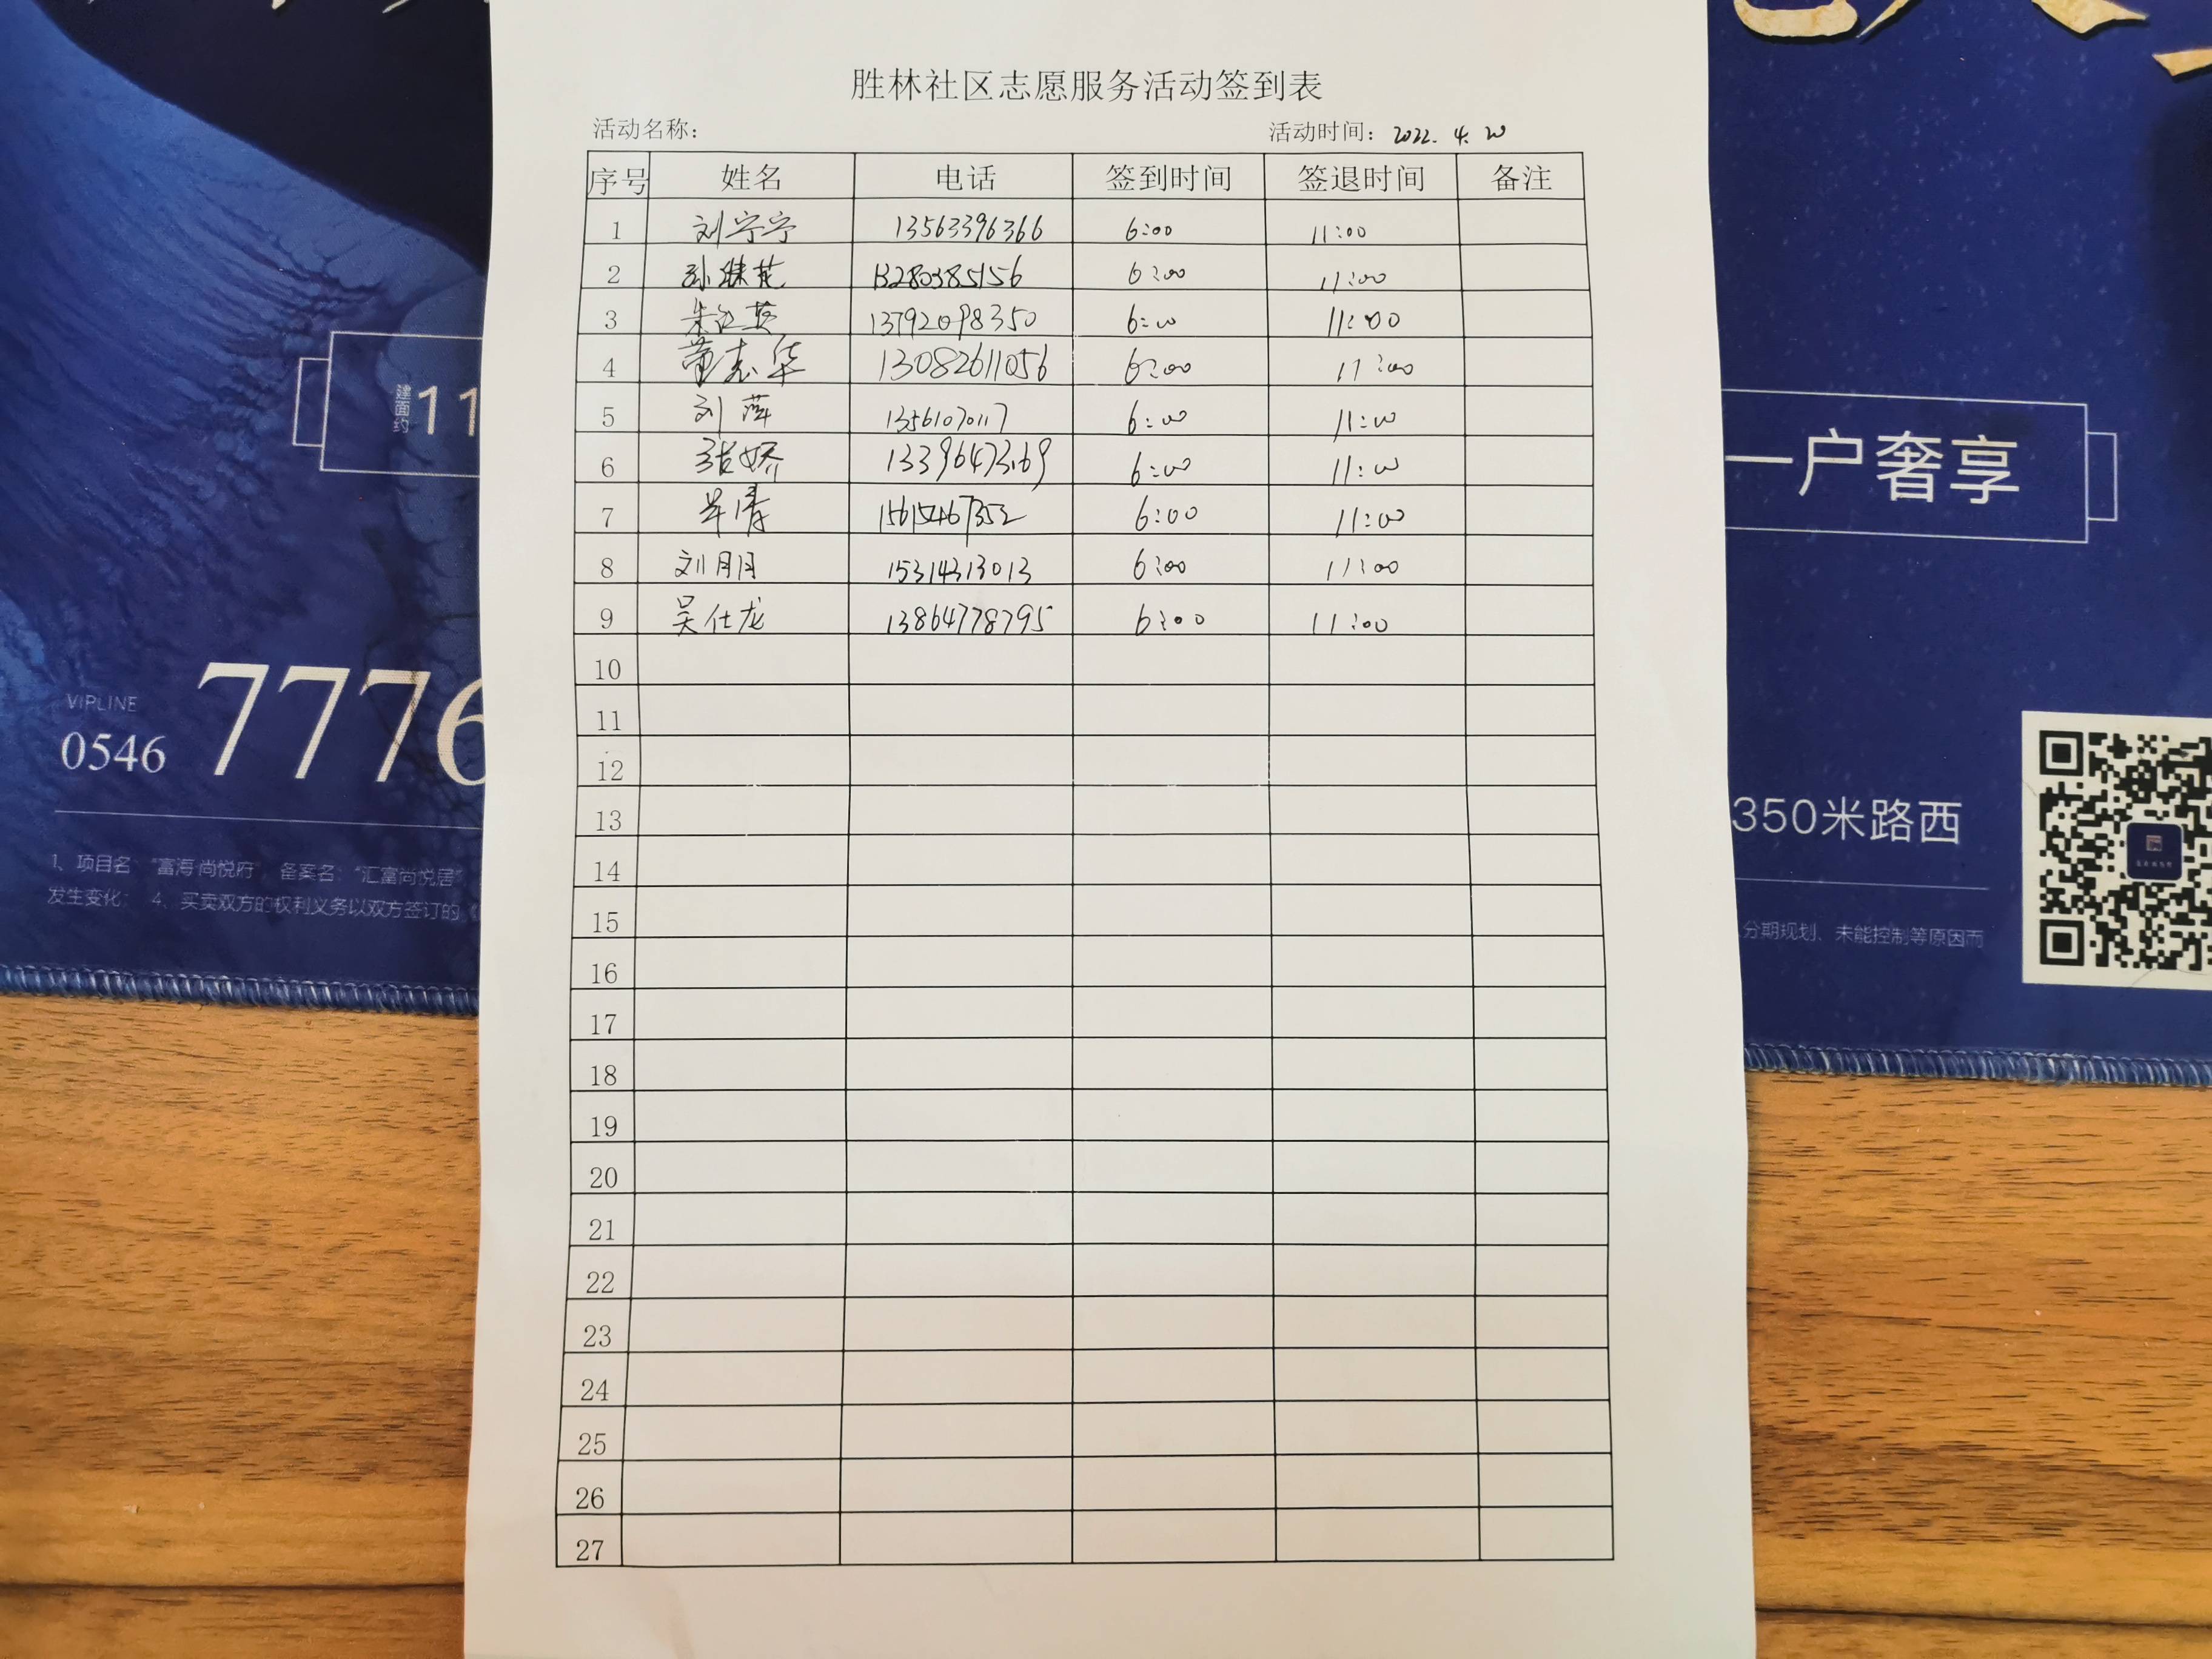 胜林社区志愿服务活动签到表
活动名称：
活动时间：2022.4.20
序号 姓名 电话 签到时间 签退时间 备注
1 刘宁宁 13563396366 6:00 11:00
2 孙继花 13280385156 6:00 11:00
3 朱江英 13792098350 6:00 11:00
4 董志华 13082611056 6:00 11:00
5 刘萍 13561070117 6:00 11:00
6 张娇 13396473169 6:00 11:00
7 毕清 15615467352 6:00 11:00
8 刘月月 15314313013 6:00 11:00
9 吴仕龙 13864778795 6:00 11:00
10
11
12
13
14
15
16
17
18
19
20
21
22
23
24
25
26
27
建面约11
一户奢享
VIPLINE
0546 7776
350米路西
1、项目名："富海·尚悦府" 备案名："汇富尚悦居"
发生变化； 4、买卖双方的权利义务以双方签订的
分期规划、未能控制等原因而